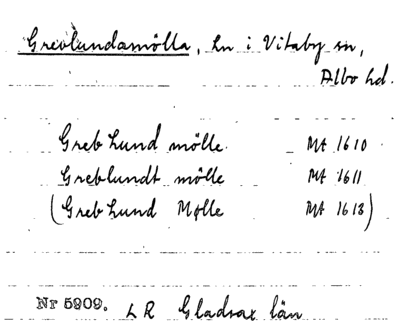 Grevlundamölla, ln i Vitaby sn,
Albo hd.
Greb Lund mölle. MA 1610
Greblundt mölle MA 1611
(Greb Lund Mølle MA 1613)
Nr 5909. LR Gladsax län